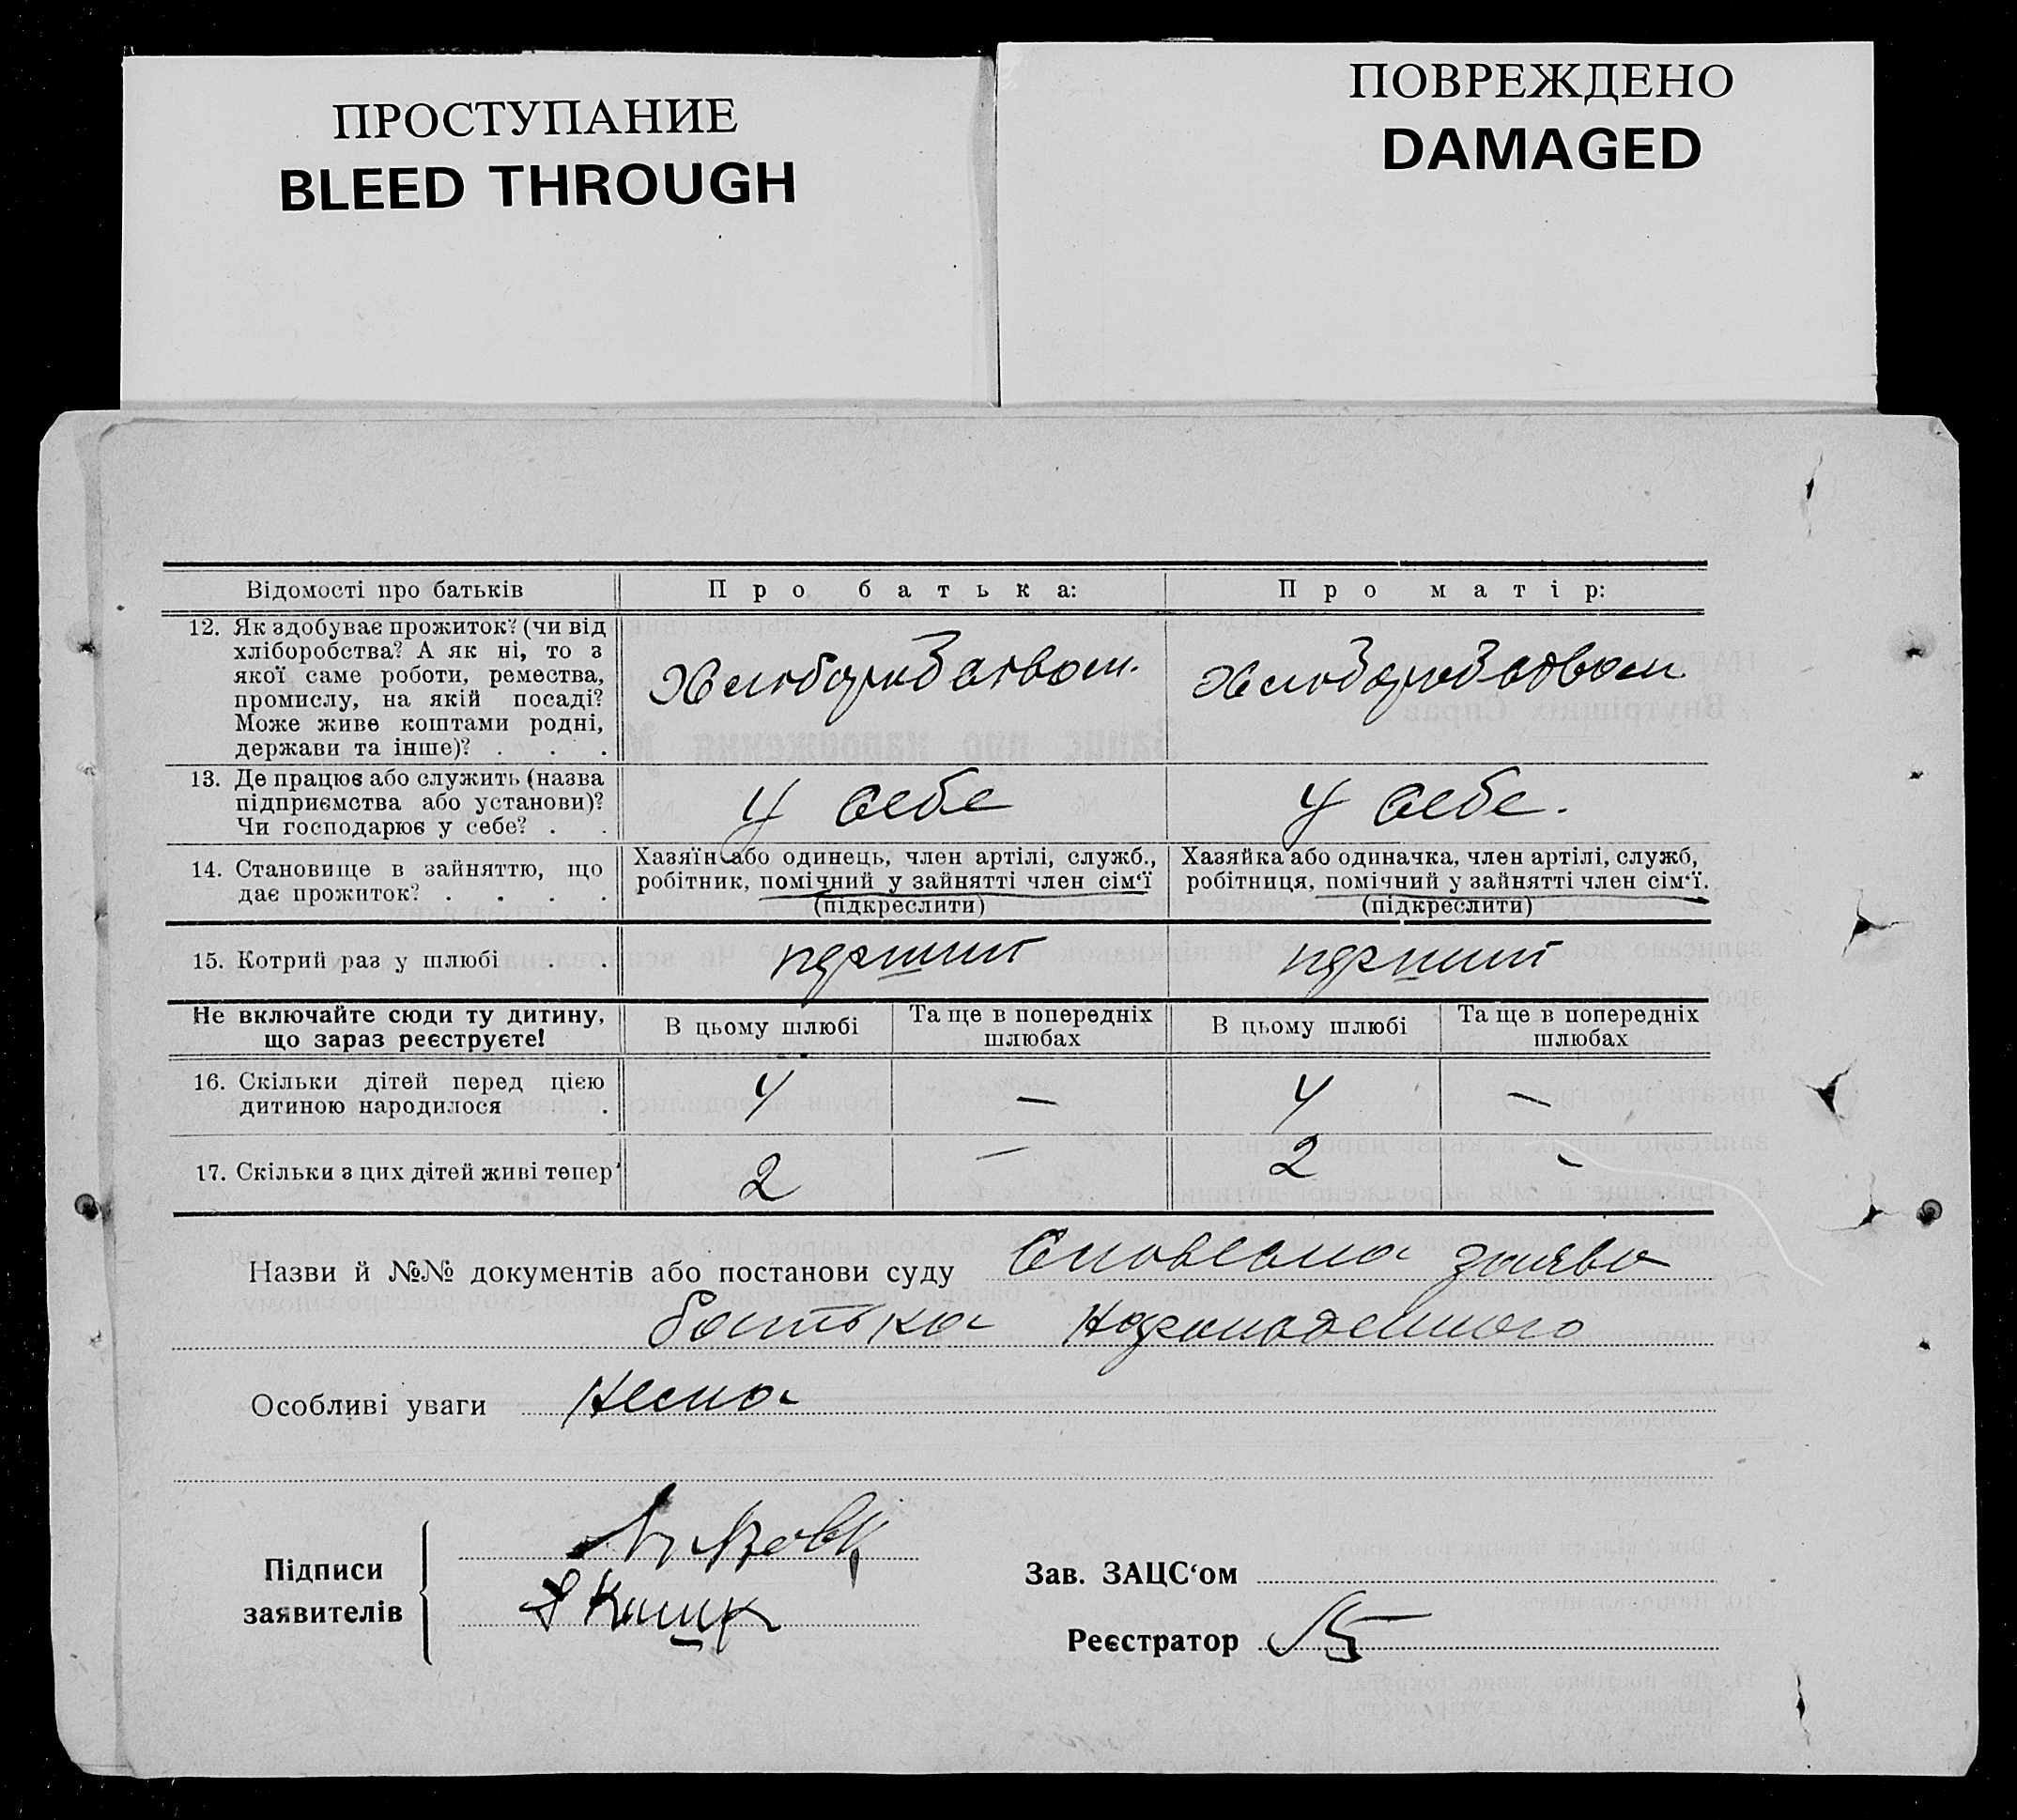 ПРОСТУПАНИЕ
BLEED THROUGH
ПОВРЕЖДЕНО
DAMAGED
Відомості про батьків
Про батька:
Про матір:
12. Як здобуває прожиток? (чи від
хліборобства? А як ні, то з
якої саме роботи, ремества,
промислу, на якій посаді?
Може живе коштами родні,
держави та інше)? . . .
13. Де працює або служить (назва
підприємства або установи)?
Чи господарює у себе? . .
у себе
у себе.
14. Становище в зайняттю, що
дає прожиток? . . . .
Хазяїн або одинець, член артілі, служб.,
робітник, помічний у зайнятті член сім‘ї
(підкреслити)
Хазяйка або одиначка, член артілі, служб,
робітниця, помічний у зайнятті член сім‘ї.
(підкреслити)
15. Котрий раз у шлюбі . .
Не включайте сюди ту дитину,
що зараз реєструєте!
В цьому шлюбі
Та ще в попередніх
шлюбах
В цьому шлюбі
Та ще в попередніх
шлюбах
16. Скільки дітей перед цією
дитиною народилося .
4
—
4
—
17. Скільки з цих дітей живі тепер
2
—
2
-
Назви й №№ документів або постанови суду заява
батька
Особливі уваги Нема
Підписи
заявителів
Зав. ЗАЦС‘ом
Реєстратор